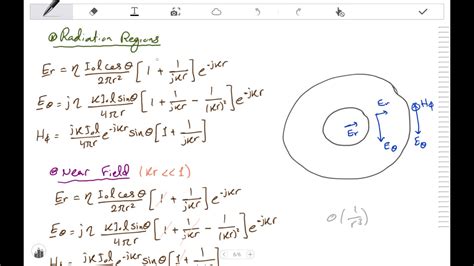 ⊛ Radiation Regions
Er = η I₀l cosθ / 2πr² [1 + 1/jKr] e^-jKr
Eθ = jη KI₀l sinθ / 4πr [1 + 1/jKr - 1/(Kr)²] e^-jKr
Hφ = jKI₀l / 4πr e^-jKr sinθ [1 + 1/jKr]
Er
Er
Eθ
Hφ
Eθ
⊛ Near Field (Kr << 1)
Er = η I₀l cosθ / 2πr² [1 + 1/jKr] e^-jKr
Eθ = jη KI₀l sinθ / 4πr [1 + 1/jKr - 1/(Kr)²] e^-jKr
Hφ = jKI₀l e^-jKr sinθ [1 + 1